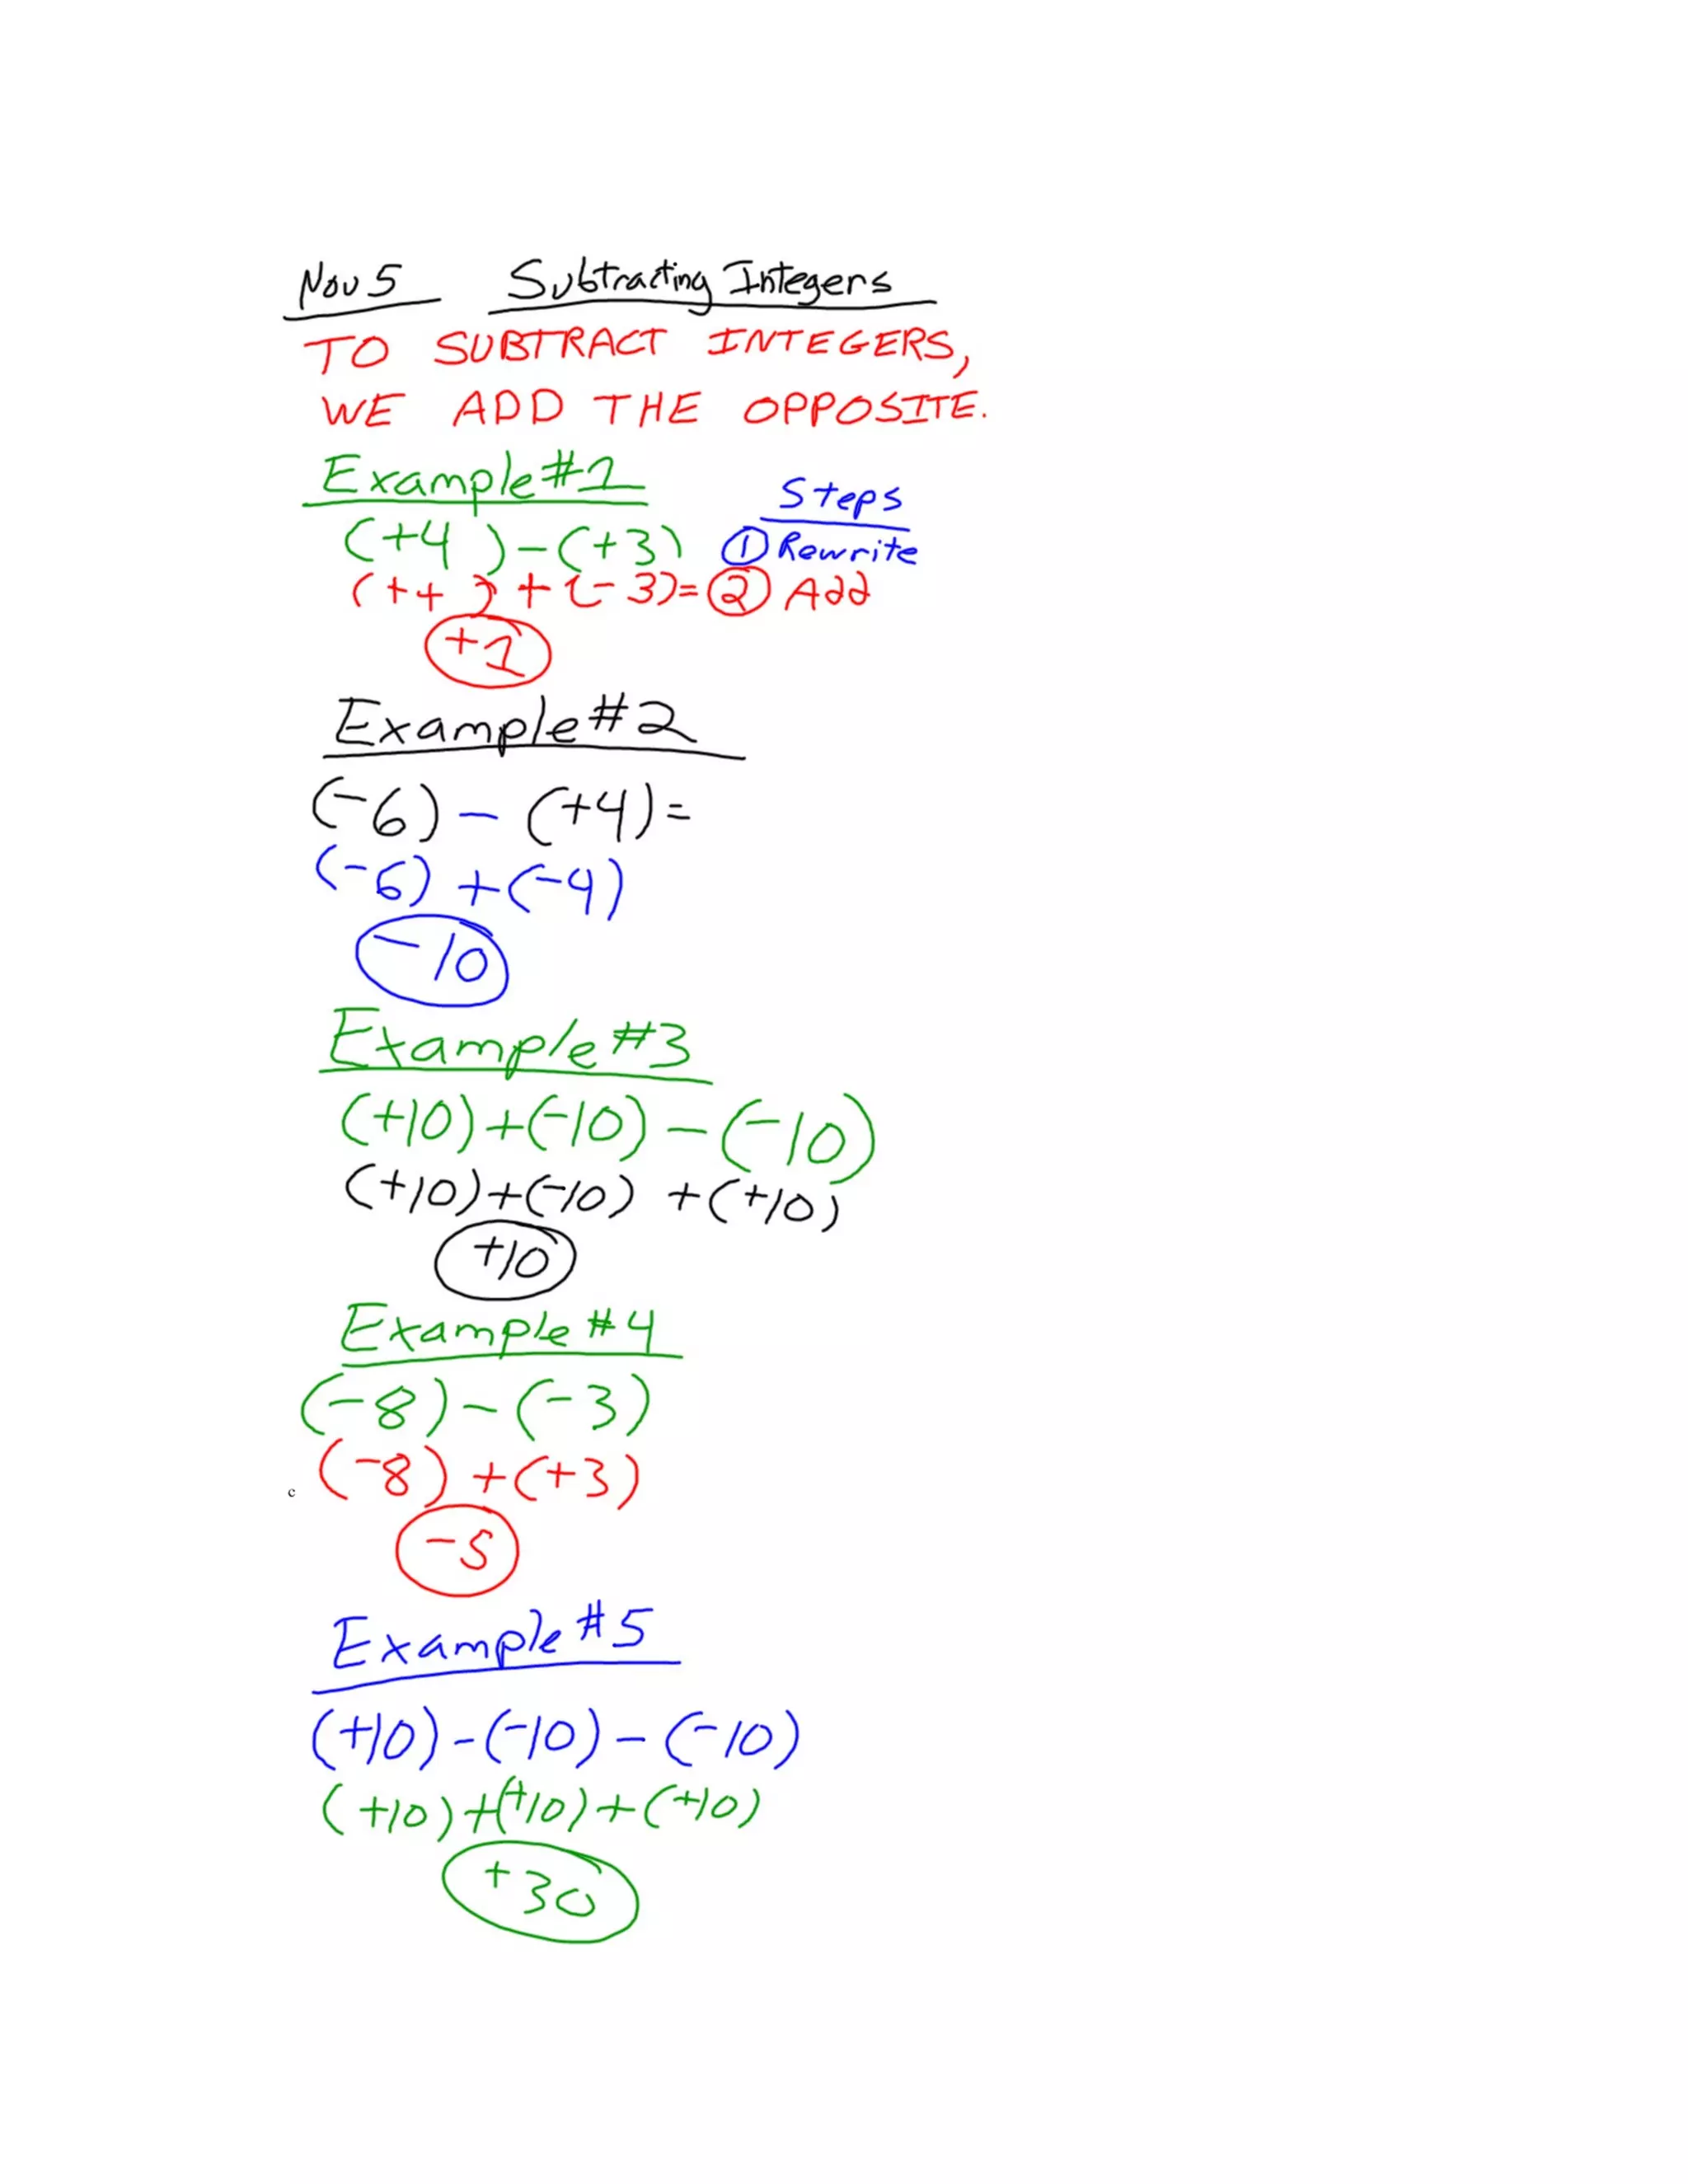 Nov 5 Subtracting Integers
TO SUBTRACT INTEGERS,
WE ADD THE OPPOSITE.
Example #1
Steps
(+4) - (+3) ① Rewrite
(+4) + (-3) = ② Add
+1
Example #2
(-6) - (+4) =
(-6) + (-4)
-10
Example #3
(+10) + (-10) - (-10)
(+10) + (-10) + (+10)
+10
Example #4
(-8) - (-3)
(-8) + (+3)
c
-5
Example #5
(+10) - (-10) - (-10)
(+10) + (+10) + (+10)
+30